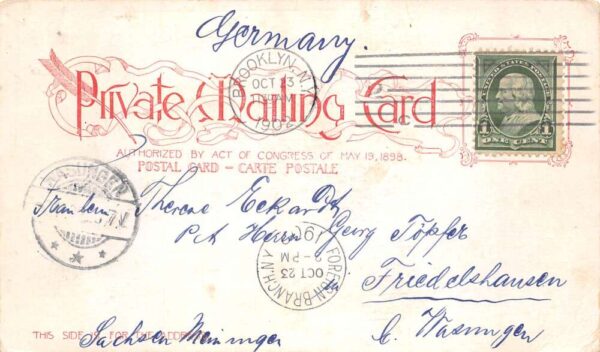 Germany.
Private Mailing Card
BROOKLYN, N.Y.
OCT 23
1902
UNITED STATES POSTAGE
1 ONE CENT 1
AUTHORIZED BY ACT OF CONGRESS OF MAY 19, 1898.
POSTAL CARD – CARTE POSTALE
WASUNGEN
Fräulein
Therese Eckardt
P. A Herrn Georg Töpfer
FOREIGN BRANCH N.Y.
OCT 23
2-PM
190
Friedelshausen
b. Wasungen
THIS SIDE IS FOR THE ADDRESS
Sachsen Meiningen